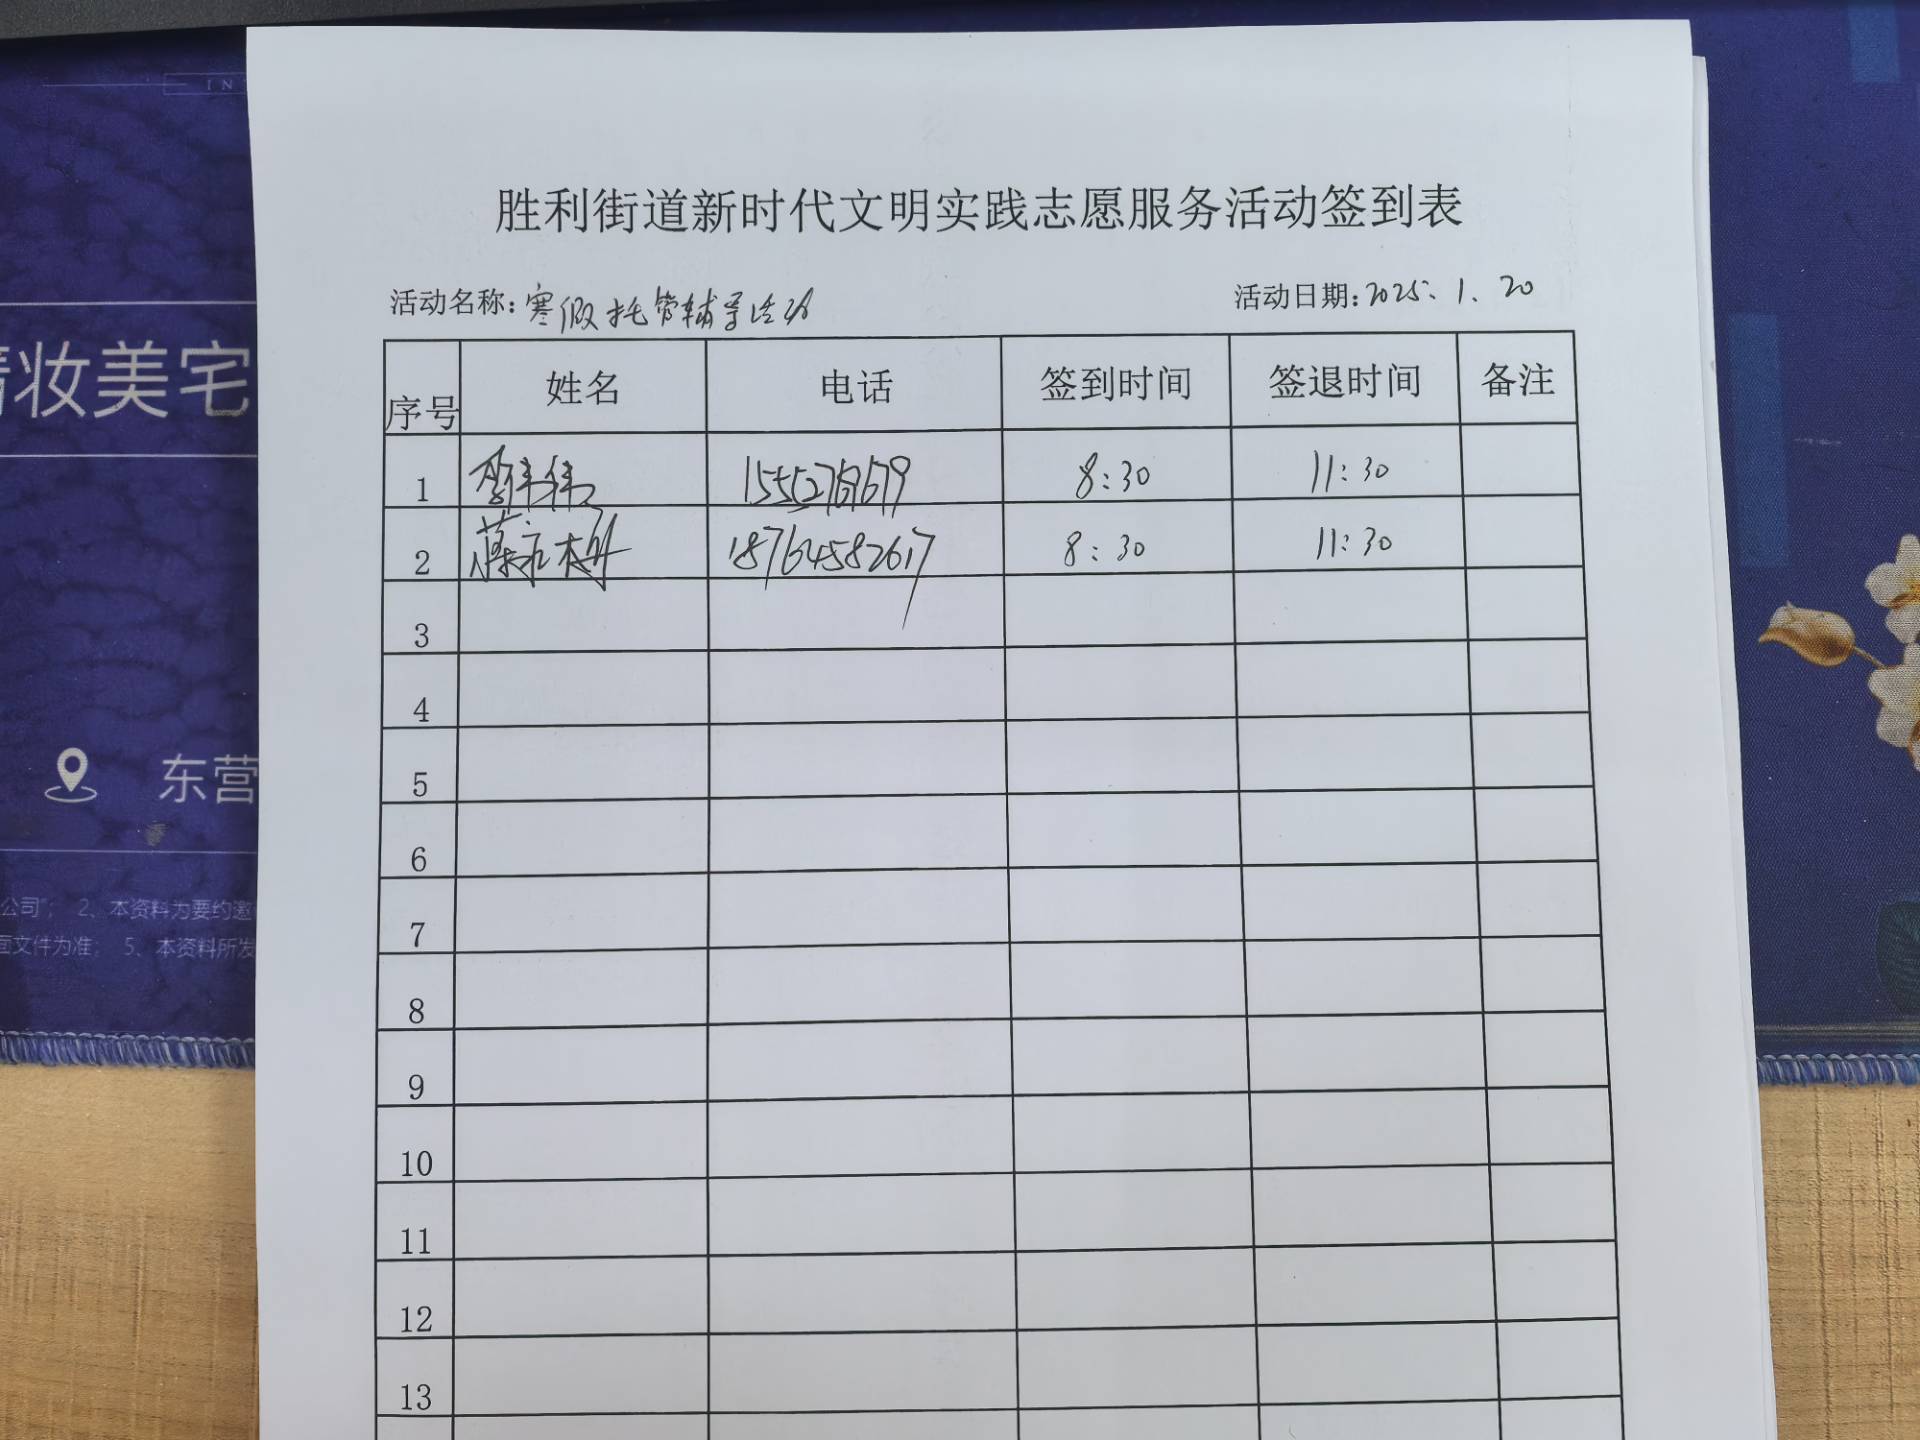 IN
胜利街道新时代文明实践志愿服务活动签到表
活动名称：寒假托管辅导活动 活动日期：2025.1.20
序号 姓名 电话 签到时间 签退时间 备注
1 8:30 11:30
2 18764582617 8:30 11:30
3
4
5
6
7
8
9
10
11
12
13
妆美宅
东营
公司”； 2、本资料为要约邀
面文件为准； 5、本资料所发